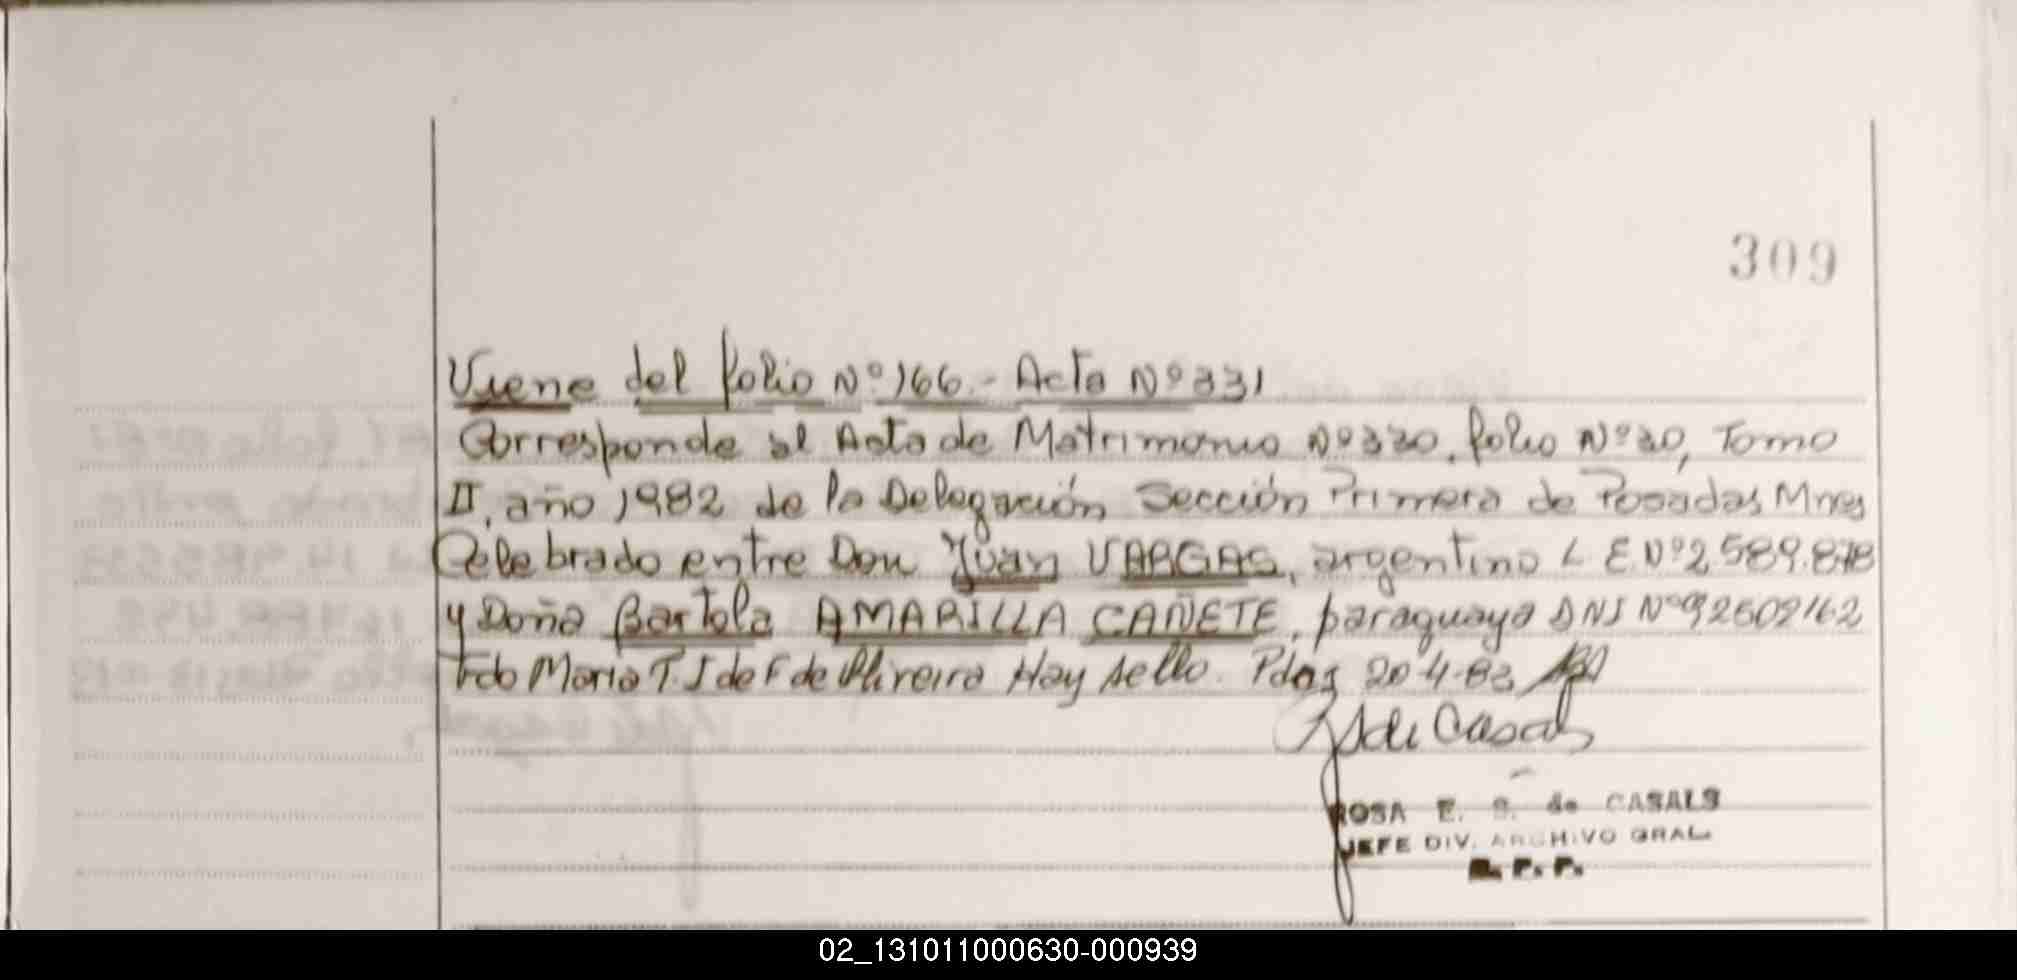 309
Viene del folio Nº 166.- Acta Nº 331
Corresponde al Acta de Matrimonio Nº 320, folio Nº 20, Tomo
II, año 1982 de la Delegación Sección Primera de Posadas Mnes
Celebrado entre Don Juan VARGAS, argentino L E. Nº 2.589.878
y Doña Bartola AMARILLA CAÑETE, paraguaya DNI Nº 92502162
Fdo Maria T. J de F de Oliveira Hay sello. Pdas 20-4-83
de Casals
ROSA E. S. de CASALS
JEFE DIV. ARCHIVO GRAL.
R. P. P.
02_131011000630-000939